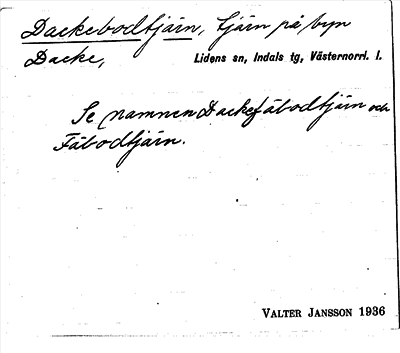 Dackebodtjärn, tjärn på byn
Dacke, Lidens sn, Indals tg, Västernorrl. l.
Se namnen Dackefäbodtjärn och
Fäbodtjärn.
VALTER JANSSON 1936